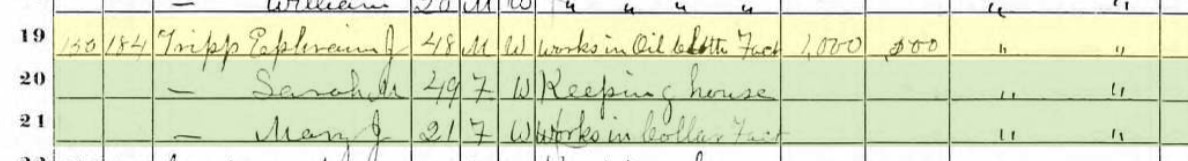 — William 20 M W " " " "   " "
19 150 184 Tripp Ephraim J 48 M W works in Oil Cloth Fact 1,000 500 " "
20 — Sarah M 49 F W Keeping house " "
21 — Mary J 21 F W Works in Collar Fact " "